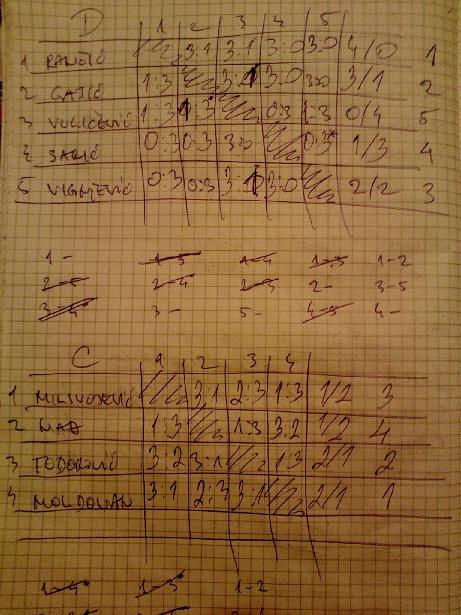 D 1 2 3 4 5
1 RANČIĆ 3:1 3:1 3:0 3:0 4/0 1
2 GAJIĆ 1:3 3:1 3:0 3:0 3/1 2
3 1:3 1:3 0:3 1:3 0/4 5
4 0:3 0:3 3:0 0:3 1/3 4
5 0:3 0:3 3:1 3:0 2/2 3
1 - 1-5 1-4 1-3 1-2
2-5 2-4 2-3 2- 3-5
3-4 3- 5- 4-5 4-
C 1 2 3 4
1 3:1 2:3 1:3 1/2 3
2 1:3 1:3 3:2 1/2 4
3 TODOROVIĆ 3:2 3:1 1:3 2/1 2
4 MOLDOVAN 3:1 2:3 3:1 2/1 1
1-4 1-3 1-2